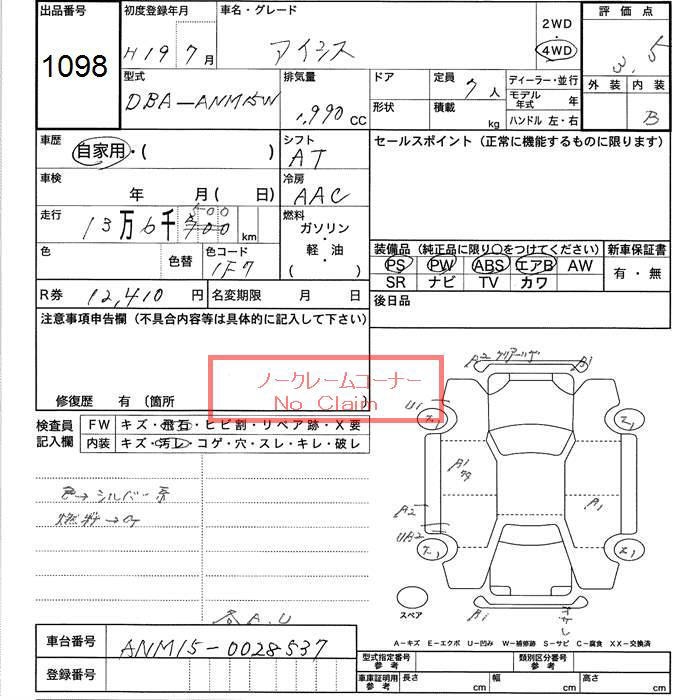 出品番号 初度登録年月 車名・グレード 2WD 評価点
1098 H19 7月 アイシス 4WD 3.5
型式 排気量 ドア 定員 7人 ディーラー・並行 外装 内装
DBA-ANM15W 1,990 CC 形状 積載 kg モデル年式 年 B
ハンドル 左・右
車歴 シフト セールスポイント（正常に機能するものに限ります）
自家用・( ) AT
車検 年 月( 日) 冷房 AAC
走行 13万6千 km 燃料
ガソリン・軽・油
( )
色 色替 色コード 1F7
装備品（純正品に限り○をつけてください） 新車保証書
PS PW ABS エアB AW 有・無
SR ナビ TV カワ
R券 12,410円 名変期限 月 日 後日品
注意事項申告欄（不具合内容等は具体的に記入して下さい）
ノークレームコーナー
No Claim
修復歴 有（箇所 ）
検査員記入欄 FW キズ・飛石・ヒビ割・リペア跡・X要
内装 キズ・汚レ・コゲ・穴・スレ・キレ・破レ
色→シルバー系
A2 B1
U1
A1
A2
UA2
A1
スペア
A1
A-キズ E-エクボ U-凹み W-補修跡 S-サビ C-腐食 XX-交換済
車台番号 ANM15-0028537
登録番号
型式指定番号参考 類別区分番号参考
車庫証明用参考 長さ cm 幅 cm 高さ cm